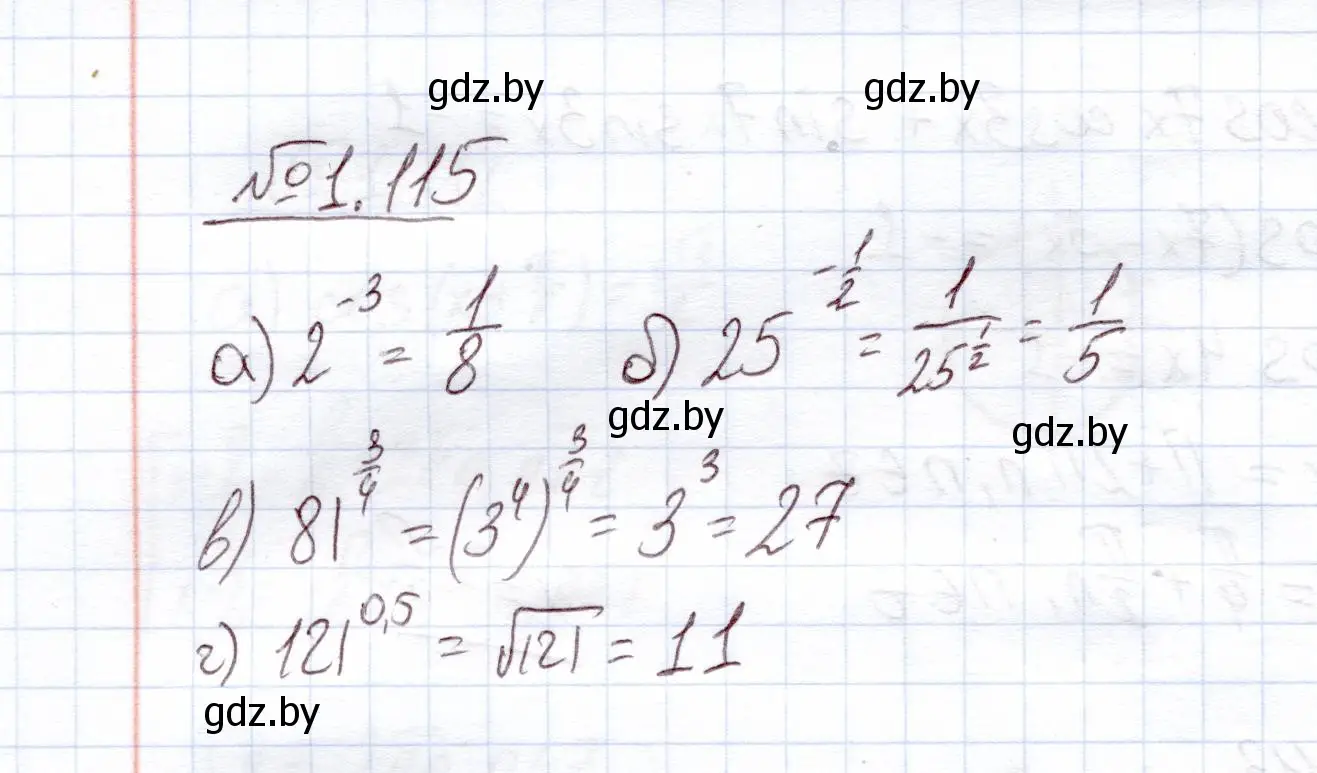 gdz.by gdz.by
№1.115
а) 2^{-3} = \frac{1}{8} б) 25^{-\frac{1}{2}} = \frac{1}{25^{\frac{1}{2}}} = \frac{1}{5}
gdz.by gdz.by
в) 81^{\frac{3}{4}} = (3^4)^{\frac{3}{4}} = 3^3 = 27
г) 121^{0,5} = \sqrt{121} = 11
gdz.by